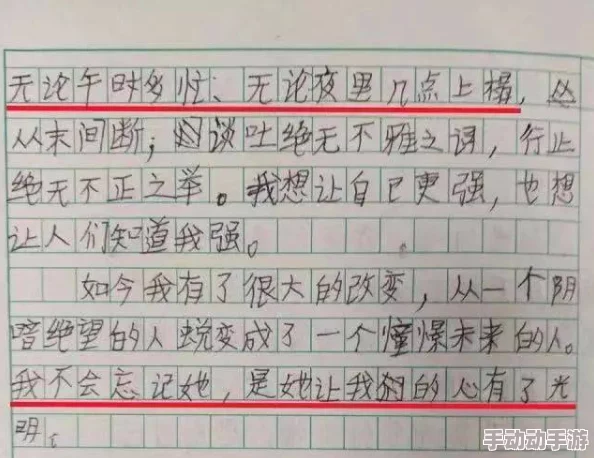 无论午时多忙、无论夜里几点上榻，
从末间断；谈吐绝无不雅之词，行止
绝无不正之举。我想让自已更强，也想
让人们知道我强。
如今我有了很大的改变，从一个阴
暗绝望的人蜕变成了一个憧憬未来的人。
我不会忘记她，是她让我的心有了光
明。
手动动手游